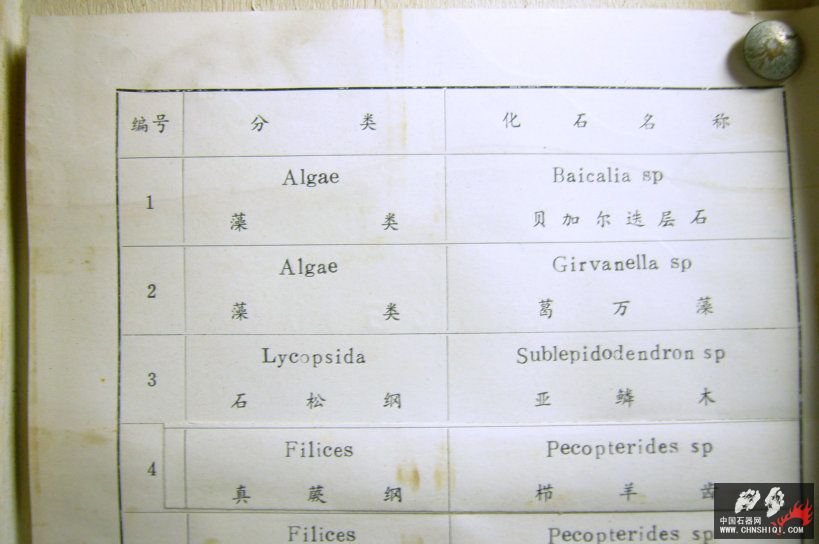 编号 分类 化石名称
1 Algae Baicalia sp
藻类 贝加尔迭层石
2 Algae Girvanella sp
藻类 葛万藻
3 Lycopsida Sublepidodendron sp
石松纲 亚鳞木
4 Filices Pecopterides sp
真蕨纲 栉羊齿
Filices Pecopterides sp
中国石器网
WWW.CHNSHIQI.COM